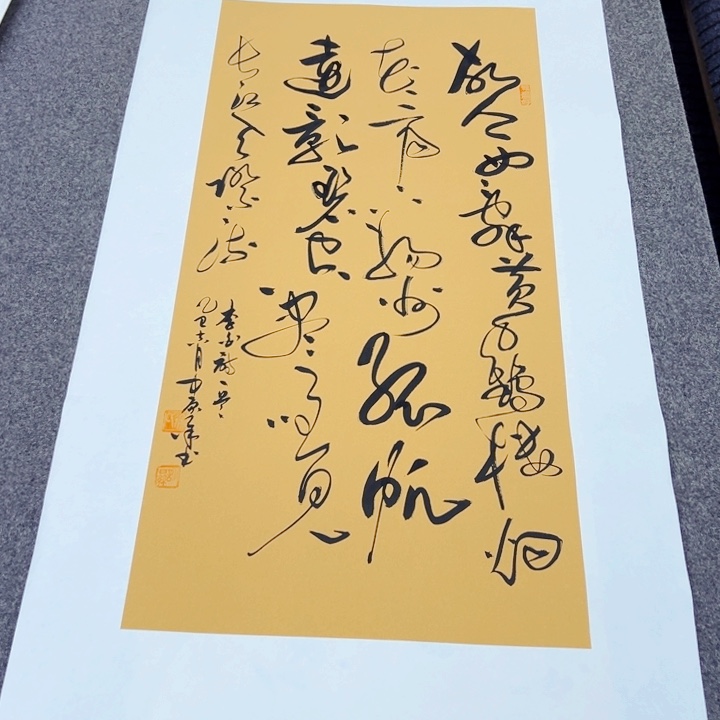 故人西辭黄鶴樓烟
花三月下揚州孤帆
遠影碧空盡唯見
長江天際流
李白詩一首
乙巳六月中原書